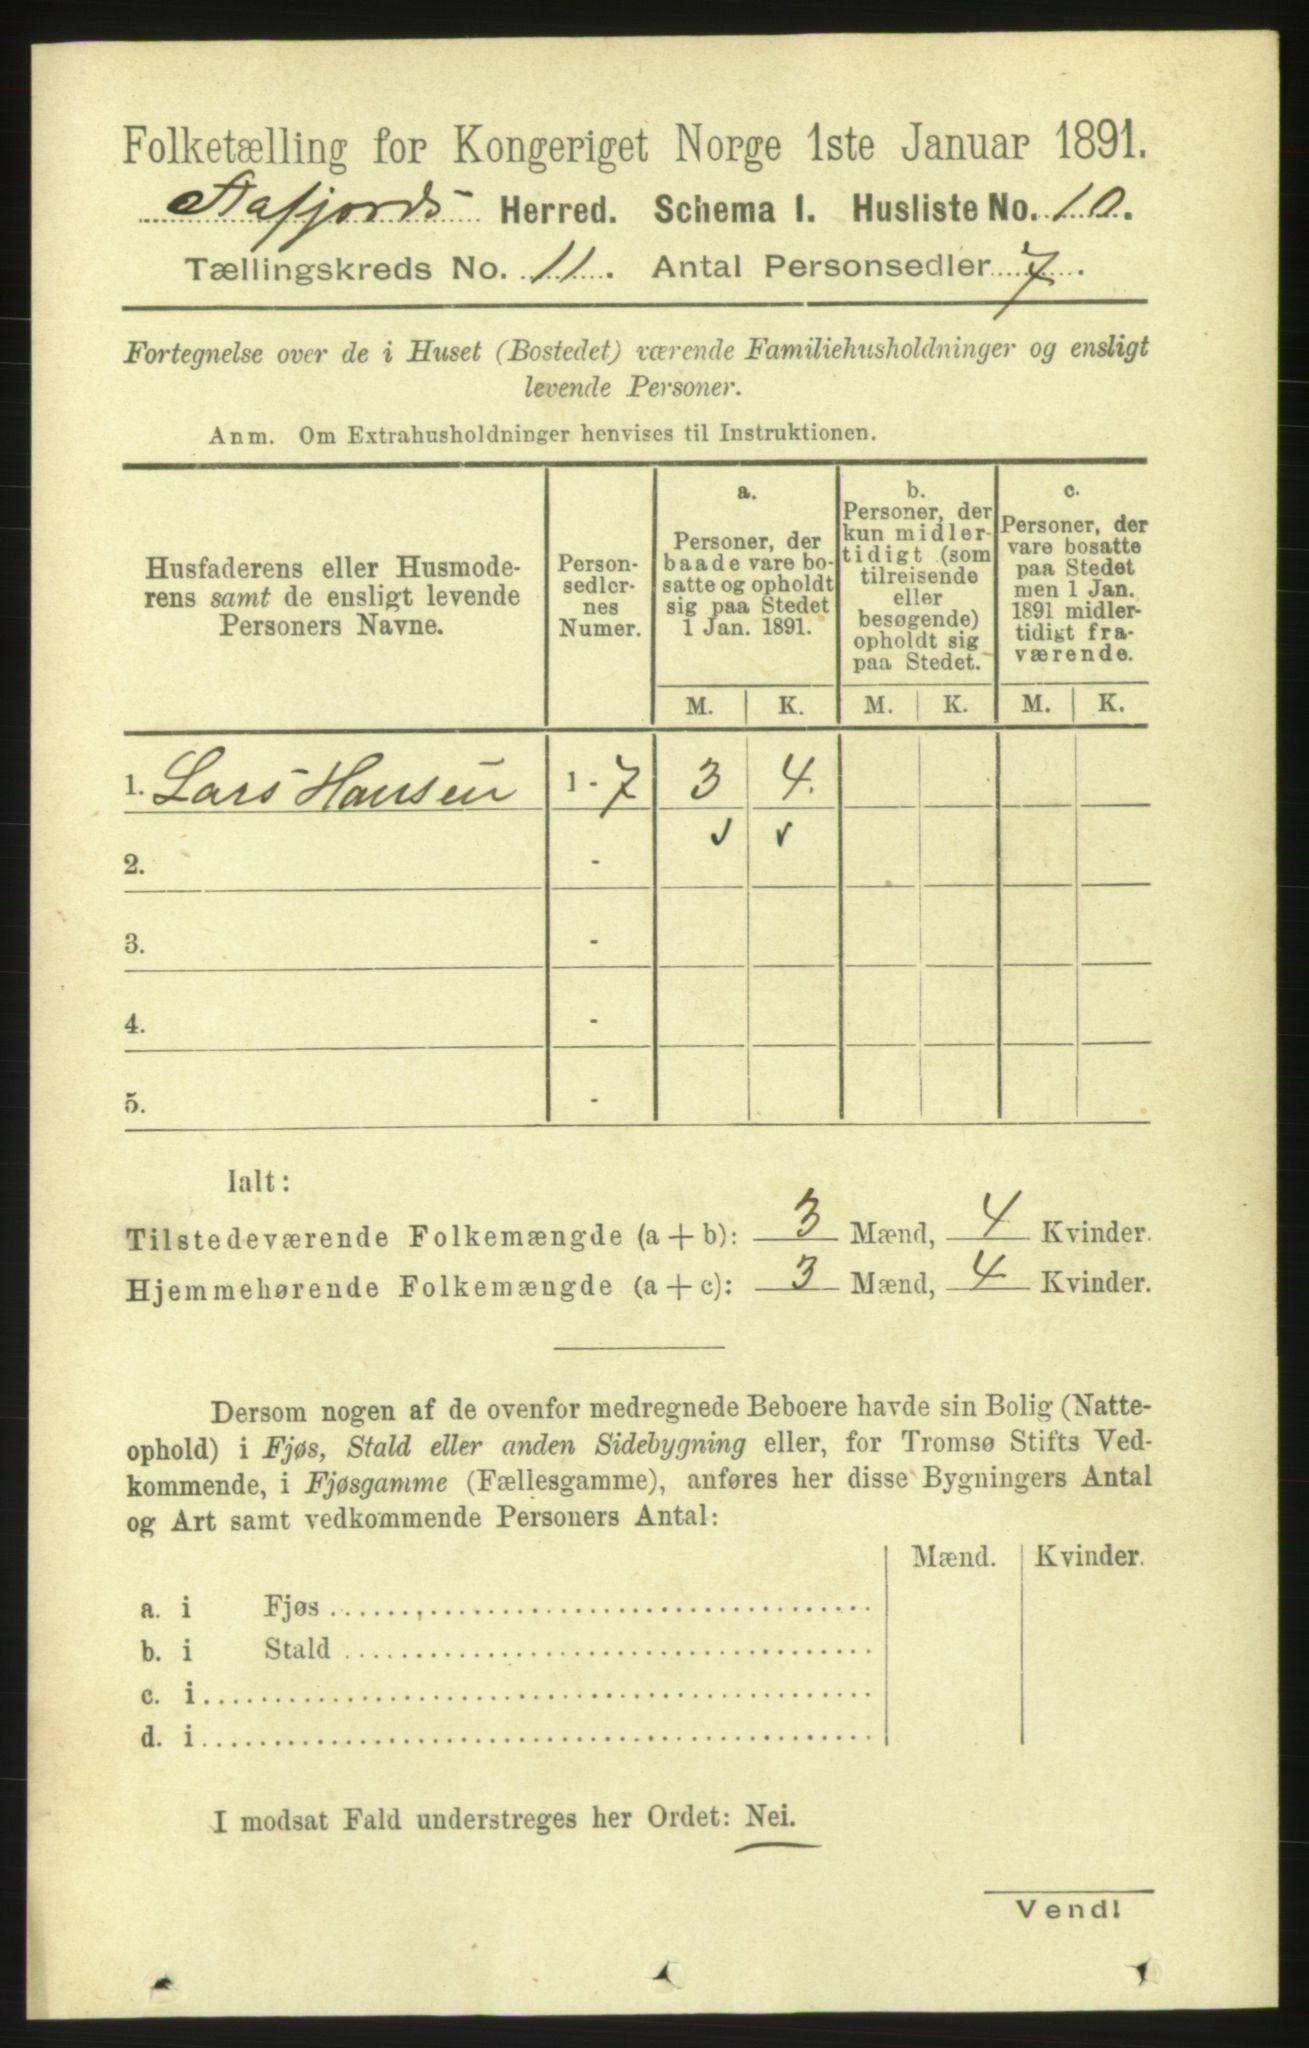 Folketælling for Kongeriget Norge 1ste Januar 1891.
Herred. Schema I. Husliste No. 10.
Tællingskreds No. 11. Antal Personsedler 7.
Fortegnelse over de i Huset (Bostedet) værende Familiehusholdninger og ensligt
levende Personer.
Anm. Om Extrahusholdninger henvises til Instruktionen.
Husfaderens eller Husmode-
rens samt de ensligt levende
Personers Navne.
Person-
sedler-
nes
Numer.
a.
Personer, der
baade vare bo-
satte og opholdt
sig paa Stedet
1 Jan. 1891.
b.
Personer, der
kun midler-
tidigt (som
tilreisende
eller
besøgende)
opholdt sig
paa Stedet.
c.
Personer, der
vare bosatte
paa Stedet
men 1 Jan.
1891 midler-
tidigt fra-
værende.
M. K. M. K. M. K.
1. Lars Hansen 1 - 7 3 4.
✓ ✓
2. -
3. -
4. -
5. -
Ialt:
Tilstedeværende Folkemængde (a + b): 3 Mænd, 4 Kvinder.
Hjemmehørende Folkemængde (a + c): 3 Mænd, 4 Kvinder.
Dersom nogen af de ovenfor medregnede Beboere havde sin Bolig (Natte-
ophold) i Fjøs, Stald eller anden Sidebygning eller, for Tromsø Stifts Ved-
kommende, i Fjøsgamme (Fællesgamme), anføres her disse Bygningers Antal
og Art samt vedkommende Personers Antal:
Mænd. Kvinder.
a. i Fjøs
b. i Stald
c. i
d. i
I modsat Fald understreges her Ordet: Nei.
Vend!